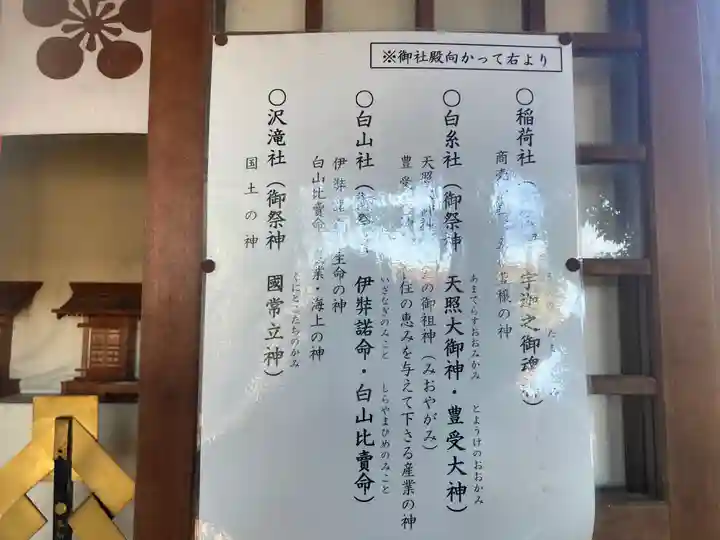 ※御社殿向かって右より
○稲荷社（ 宇迦之御魂 ）
商売 の神
○白糸社（御祭神 天照大御神・豊受大神）
あまてらすおおみかみ とようけのおおかみ
天照 の御祖神（みおやがみ）
豊受 住の恵みを与えて下さる産業の神
○白山社（御祭 伊弉諾命・白山比賣命）
いざなぎのみこと しらやまひめのみこと
伊弉諾 生命の神
白山比賣命 業・海上の神
○沢滝社（御祭神 國常立神）
くにとこたちのかみ
国土の神